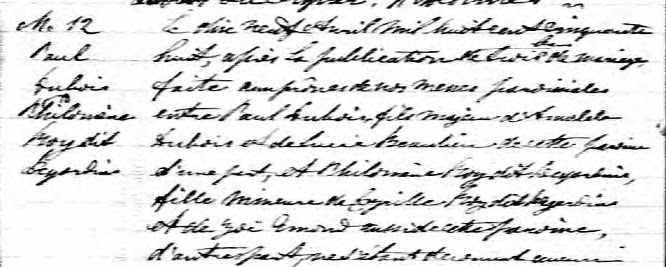 M. 12
Paul
Dubois
&
Philomène
Roy dit
Lejardins
Le dix neuf Avril mil huit cent cinquante
huit, après la publication de trois bs de mariage,
faite aux prônes de nos messes paroissiales
entre Paul Dubois, fils majeur d'
Dubois et de Lucie Beaulieu de cette paroisse
d'une part, et Philomène Roy dit Lejardins,
fille mineure de Cyrille Roy dit Lejardins
et de Zoë Emond aussi de cette paroisse,
d'autre part, ne s'étant découvert aucun